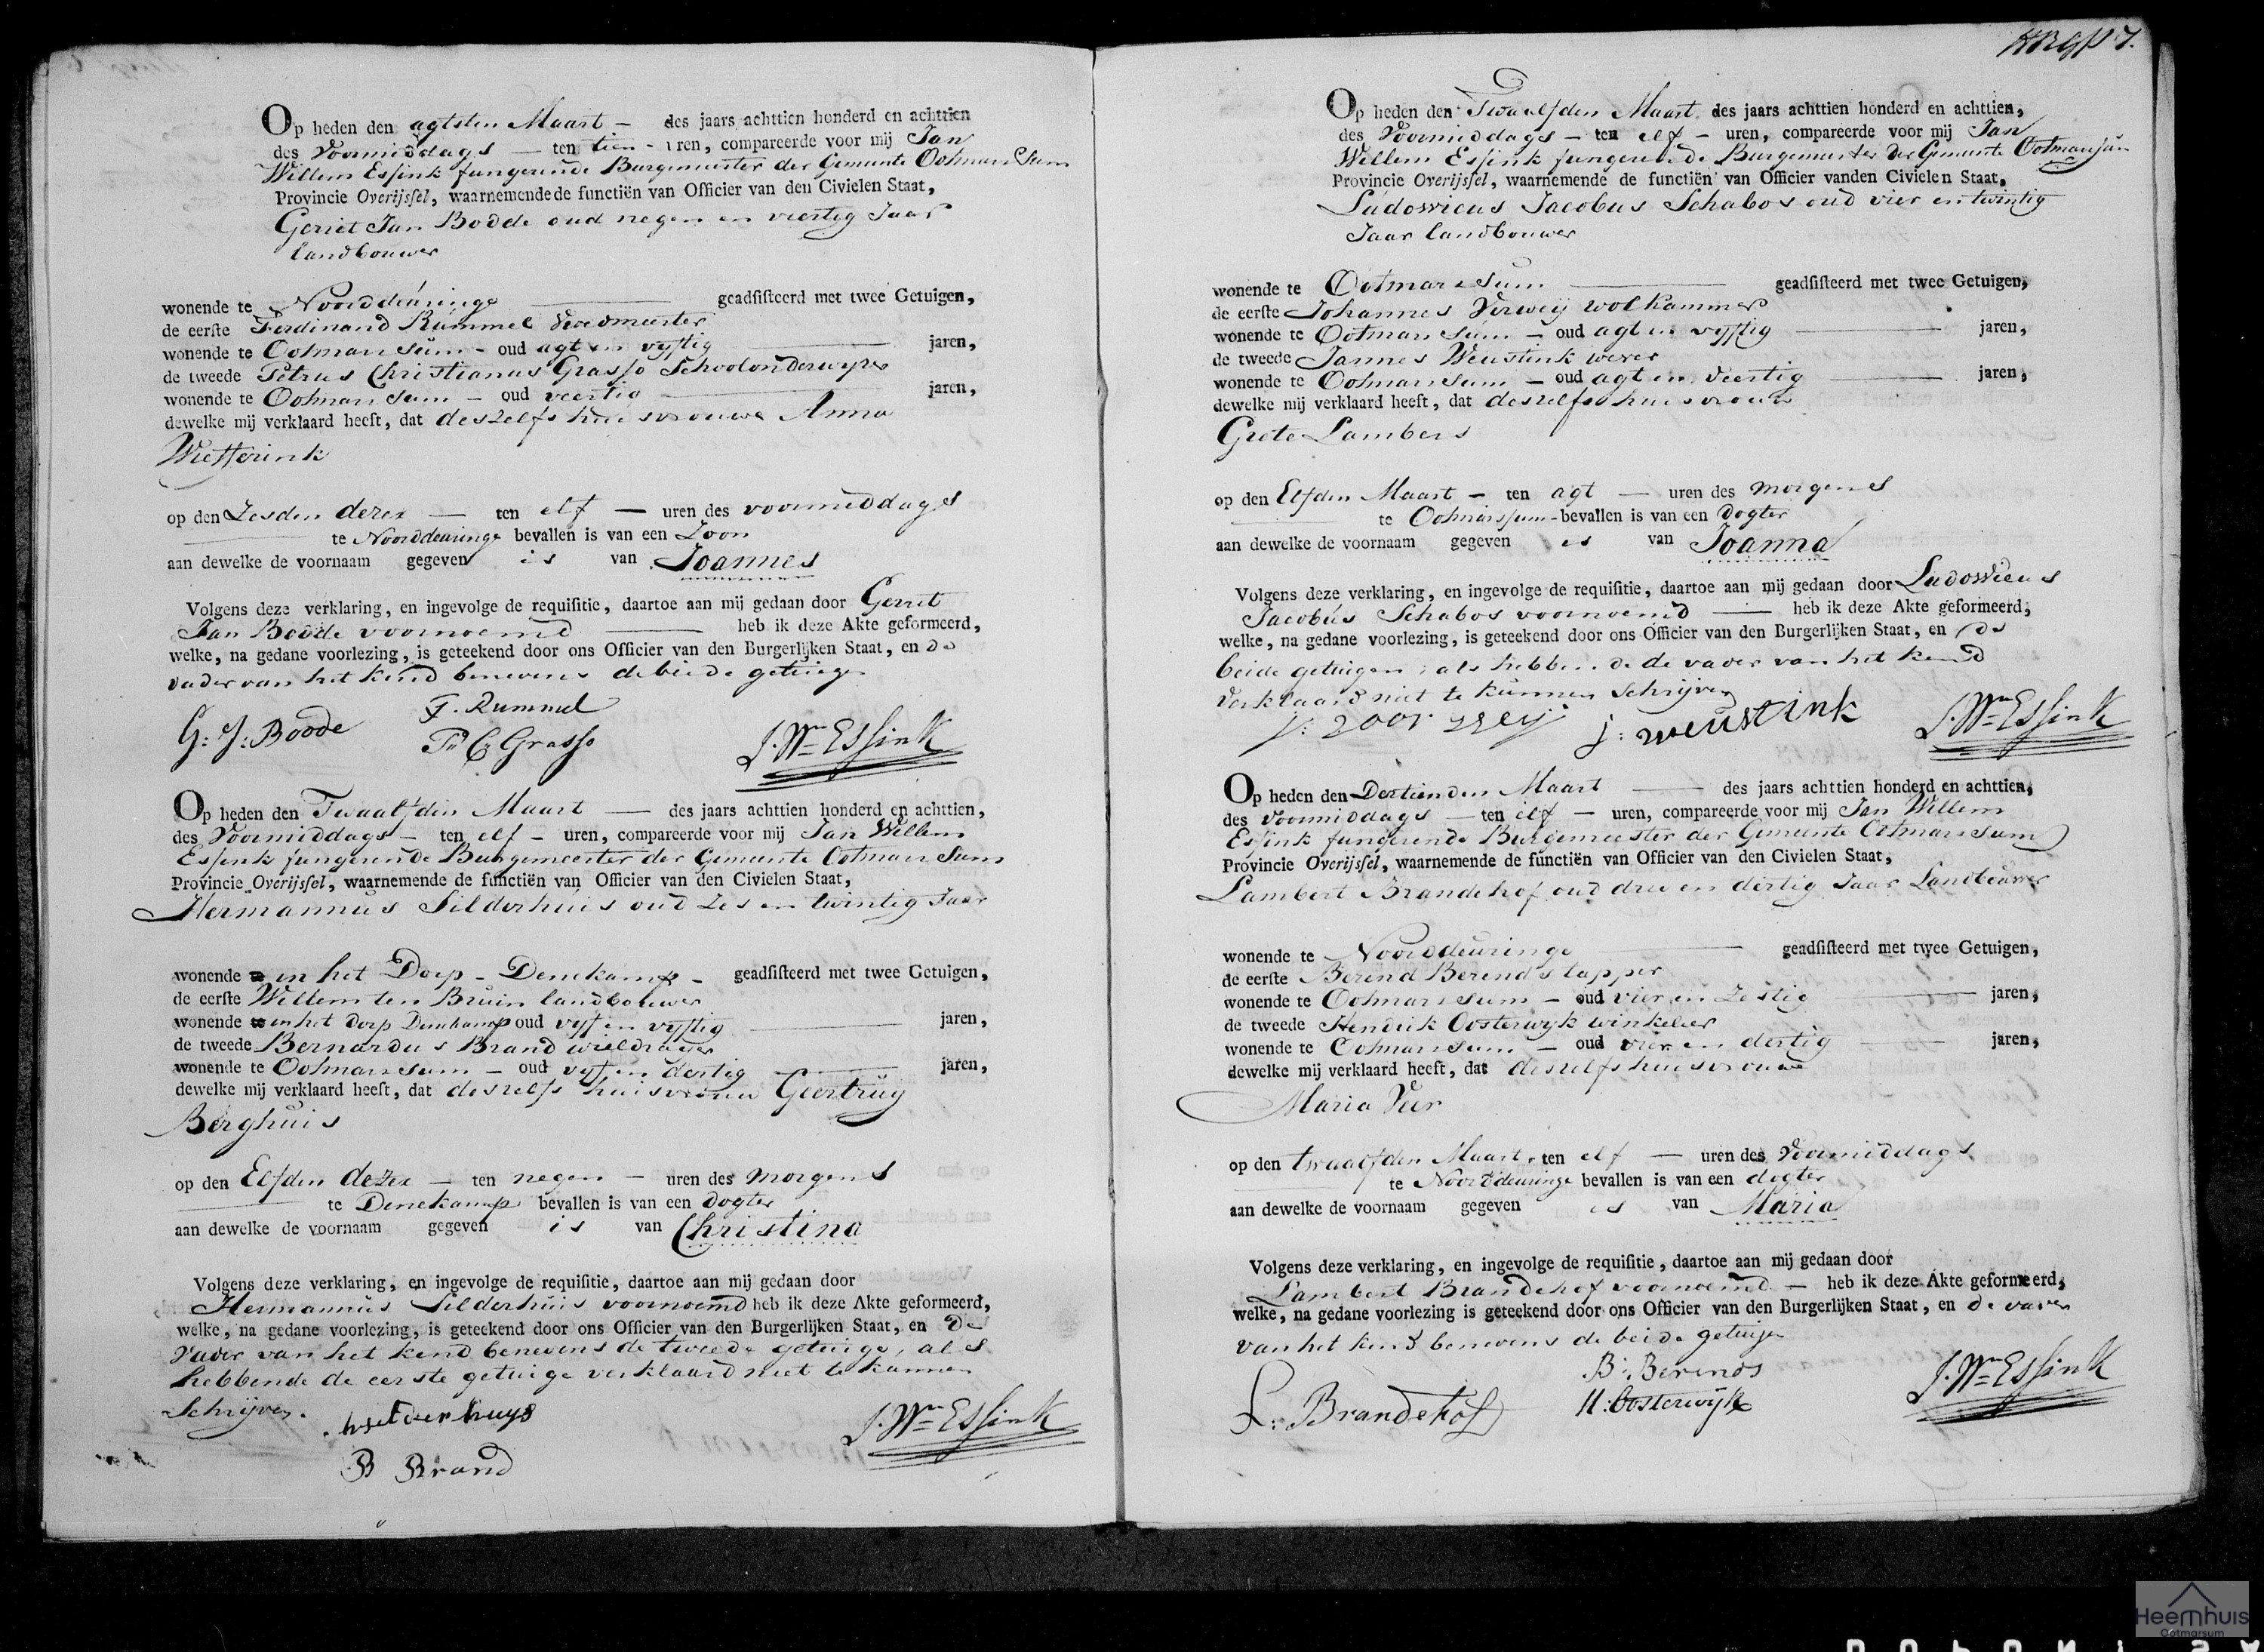 Op heden den agtsten Maart — des jaars achttien honderd en achttien
des Voormiddags — ten tien - uren, compareerde voor mij Jan
Willem Essink fungerende Burgemeester der Gemeente Ootmarssum
Provincie Overijssel, waarnemende de functiën van Officier van den Civielen Staat,
Gerriet Jan Bodde oud negen en veertig Jaar
landbouwer
wonende te Noorddeuringe geadsisteerd met twee Getuigen,
de eerste Ferdinand Rümmel
wonende te Ootmarssum - oud agt en vyftig jaren,
de tweede Petrus Christianus Grasso Schoolonderwyzer
wonende te Ootmarssum - oud veertig jaren,
dewelke mij verklaard heeft, dat deszelfs huisvrouwe Anna
Wiefferink
op den Zesden dezer — ten elf — uren des voormiddags
te Noorddeuringe bevallen is van een Zoon
aan dewelke de voornaam gegeven is van Joannes
Volgens deze verklaring, en ingevolge de requisitie, daartoe aan mij gedaan door Gerriet
Jan Bodde voornoemd heb ik deze Akte geformeerd,
welke, na gedane voorlezing, is geteekend door ons Officier van den Burgerlijken Staat, en de
vader van het kind benevens de beide getuigen
G: J: Bodde
F. Rummel
P. C. Grasso
J. Wm Essink
Op heden den Twaalfden Maart — des jaars achttien honderd en achttien,
des Voormiddags - ten elf - uren, compareerde voor mij Jan Willem
Essink fungerende Burgemeester der Gemeente Ootmarssum
Provincie Overijssel, waarnemende de functiën van Officier van den Civielen Staat,
Hermannus Silderhuis oud Zes en twintig Jaar
wonende in het Dorp - Denekamp - geadsisteerd met twee Getuigen,
de eerste Willem ten Bruin landbouwer
wonende in het dorp Denekamp oud vyf en vyftig jaren,
de tweede Bernardus Brand wieldrager
wonende te Ootmarssum - oud vyf en dertig jaren,
dewelke mij verklaard heeft, dat deszelfs huisvrouw Geertruy
Berghuis
op den Elfden dezer — ten negen — uren des morgens
te Denekamp bevallen is van een dogter
aan dewelke de voornaam gegeven is van Christina
Volgens deze verklaring, en ingevolge de requisitie, daartoe aan mij gedaan door
Hermannus Silderhuis voornoemd heb ik deze Akte geformeerd,
welke, na gedane voorlezing, is geteekend door ons Officier van den Burgerlijken Staat, en de
vader van het kind benevens de tweede getuige, als
hebbende de eerste getuige verklaard niet te kunnen
Schrijven.
B Brand
J. Wm Essink
7.
Op heden den Twaalfden Maart des jaars achttien honderd en achttien,
des Voormiddags - ten elf - uren, compareerde voor mij Jan
Willem Essink fungerende Burgemeester der Gemeente Ootmarssum
Provincie Overijssel, waarnemende de functiën van Officier van den Civielen Staat,
Ludovicus Jacobus Schabos oud vier en twintig
Jaar landbouwer
wonende te Ootmarssum geadsisteerd met twee Getuigen,
de eerste Johannes Verweij wolkammer
wonende te Ootmarssum - oud agt en vyftig jaren,
de tweede Jannes Weustink wever
wonende te Ootmarssum - oud agt en veertig jaren,
dewelke mij verklaard heeft, dat deszelfs huisvrouw
Grete Lambers
op den Elfden Maart - ten agt — uren des morgens
te Ootmarssum - bevallen is van een Dogter
aan dewelke de voornaam gegeven is van Joanna
Volgens deze verklaring, en ingevolge de requisitie, daartoe aan mij gedaan door Ludovicus
Jacobus Schabos voornoemd heb ik deze Akte geformeerd,
welke, na gedane voorlezing, is geteekend door ons Officier van den Burgerlijken Staat, en de
beide getuigen, als hebbende de vader van het kind
verklaard niet te kunnen Schrijven
j: weustink
J. Wm Essink
Op heden den Dertienden Maart — des jaars achttien honderd en achttien,
des voormiddags — ten elf — uren, compareerde voor mij Jan Willem
Essink fungerende Burgemeester der Gemeente Ootmarssum
Provincie Overijssel, waarnemende de functiën van Officier van den Civielen Staat,
Lambert Brandehof oud drie en dertig Jaar Landbouwer
wonende te Noorddeuringe geadsisteerd met twee Getuigen,
de eerste Berend Berends tapper
wonende te Ootmarssum - oud vier en Zestig jaren,
de tweede Hendrik Oosterwyk winkelier
wonende te Ootmarssum - oud vier en dertig jaren,
dewelke mij verklaard heeft, dat deszelfs huisvrouwe
Maria Veer
op den twaalfden Maart, ten elf — uren des Voormiddags
te Noorddeuringe bevallen is van een dogter
aan dewelke de voornaam gegeven is van Maria
Volgens deze verklaring, en ingevolge de requisitie, daartoe aan mij gedaan door
Lambert Brandehof voornoemd — heb ik deze Akte geformeerd,
welke, na gedane voorlezing is geteekend door ons Officier van den Burgerlijken Staat, en de vader
van het kind benevens de beide getuigen
L: Brandehof
B: Berends
H: Oosterwijk
J. Wm Essink
Heemhuis
Ootmarsum